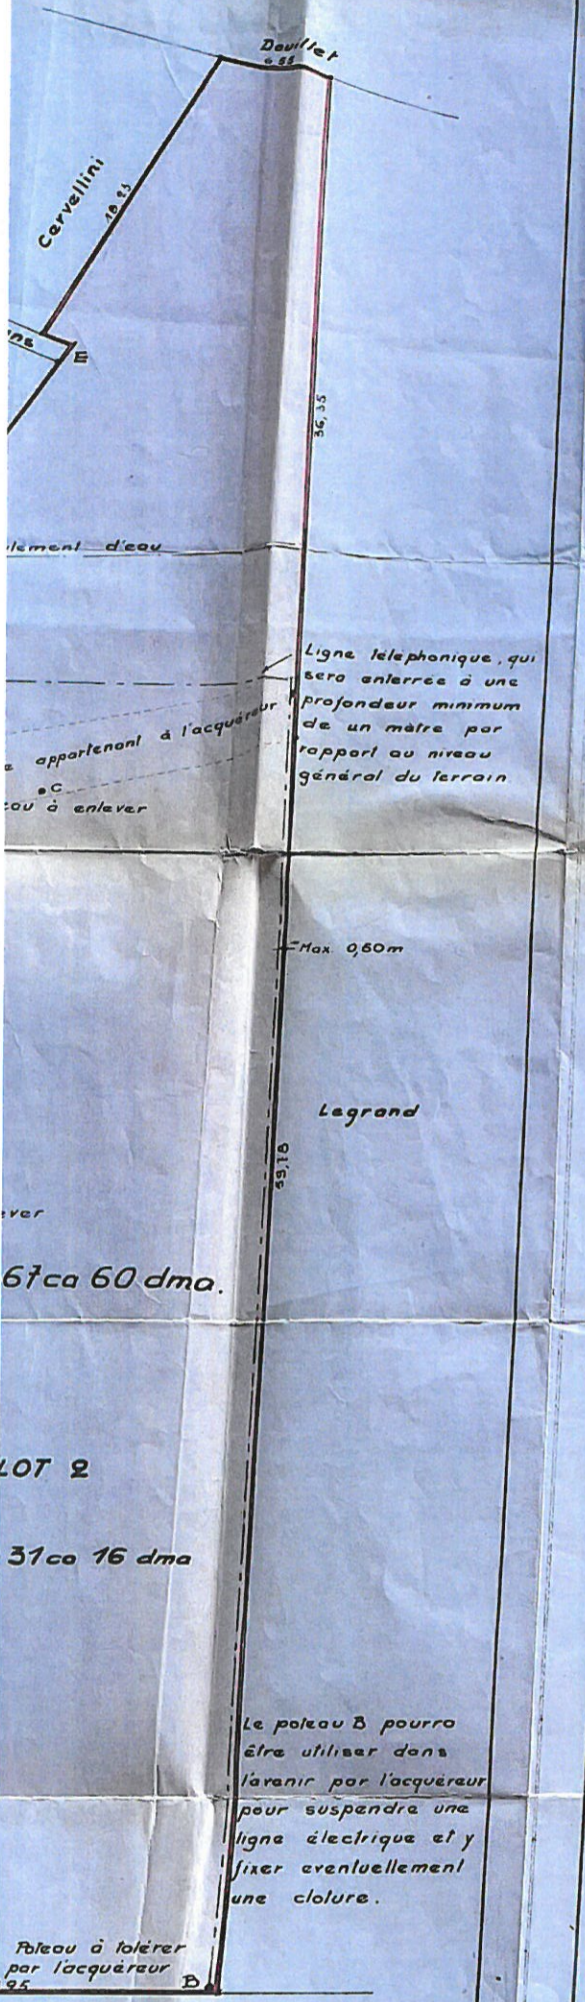 Douillet
6.55
Cervellini
18.25
E
36,35
d'eau
Ligne téléphonique, qui
sera enterrée à une
profondeur minimum
de un mètre par
rapport au niveau
général du terrain
appartenant à l'acquéreur
C
à enlever
Max. 0,60m
Legrand
59,18
67ca 60 dma.
LOT 2
31ca 16 dma
Le poteau B pourra
être utiliser dans
l'avenir par l'acquéreur
pour suspendre une
ligne électrique et y
fixer eventuellement
une cloture.
Poteau à tolérer
par l'acquéreur
95
B